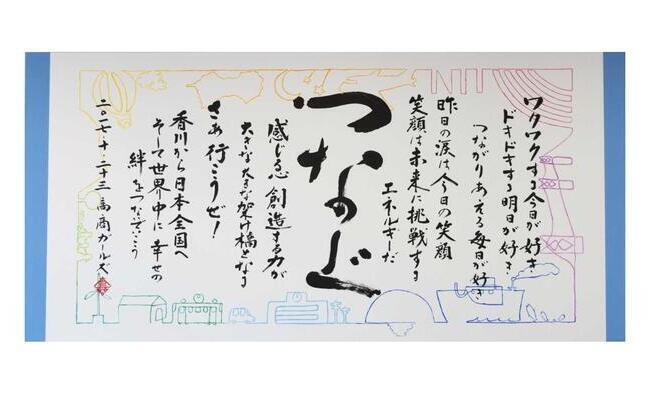 ワクワクする今日が好き
ドキドキする明日が好き
つながりあえる毎日が好き
昨日の涙は今日の笑顔
笑顔は未来に挑戦する
エネルギーだ
つなぐ
感じる心 創造する力が
大きな大きな架け橋となる
さあ 行こうぜ!
香川から日本全国へ
そして世界中に 幸せの
絆をつないでいこう
二〇一七・十・二十三 高商ガールズ